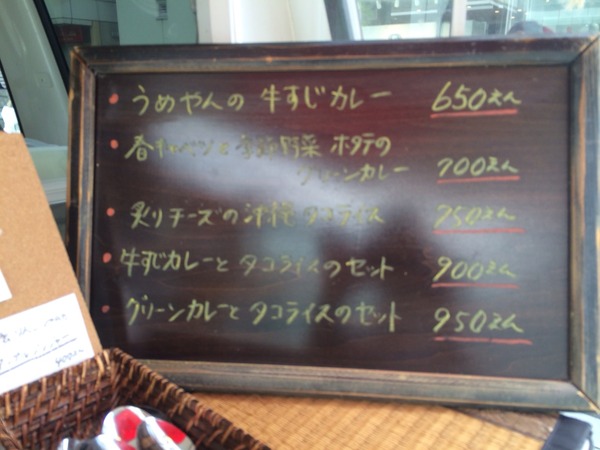 ・うめやんの 牛すじカレー 650えん
・春キャベツと季節野菜 ホタテの
グリーンカレー 700えん
・炙りチーズの沖縄タコライス 750えん
・牛すじカレーと タコライスのセット 900えん
・グリーンカレーと タコライスのセット 950えん